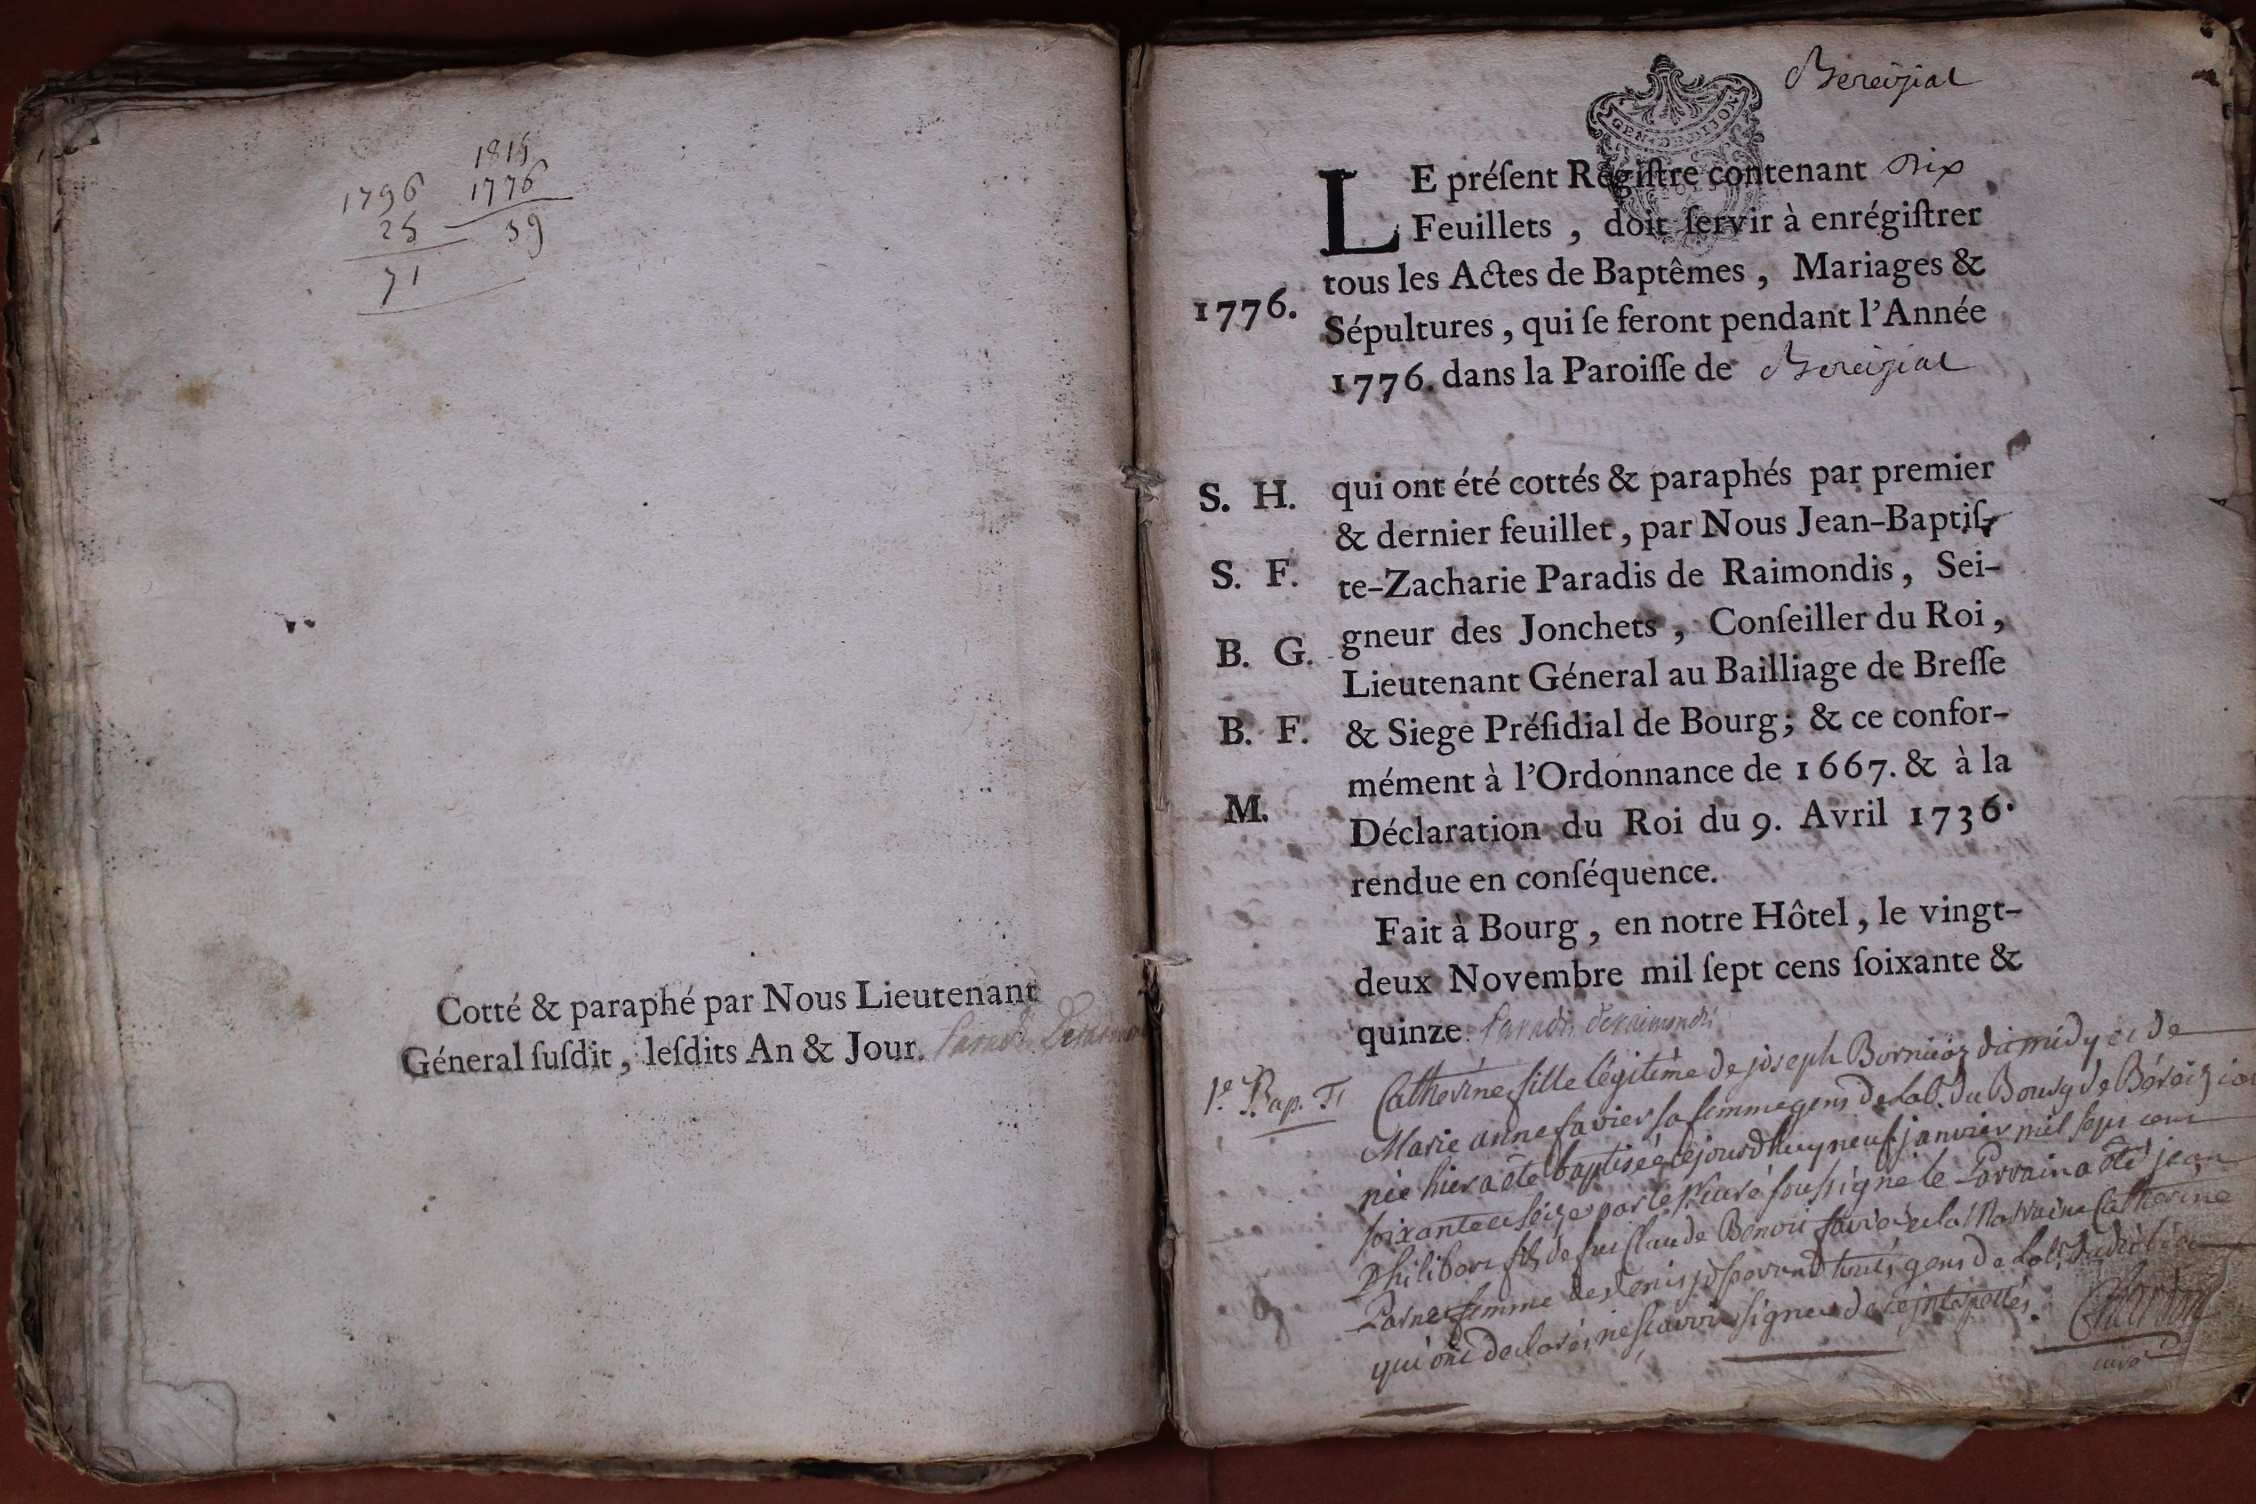 1796
25
71
1815
1776
39
Cotté & paraphé par Nous Lieutenant
Géneral ſuſdit, leſdits An & Jour.
Bereÿziat
GEN. DE DIJON
LE préſent Régiſtre contenant Dix
Feuillets, doit ſervir à enrégiſtrer
tous les Actes de Baptêmes, Mariages &
1776.
Sépultures, qui ſe feront pendant l'Année
1776. dans la Paroiſſe de Bereÿziat
S. H. qui ont été cottés & paraphés par premier
& dernier feuillet, par Nous Jean-Baptiſ-
S. F. te-Zacharie Paradis de Raimondis, Sei-
B. G. gneur des Jonchets, Conſeiller du Roi,
Lieutenant Géneral au Bailliage de Breſſe
B. F. & Siege Préſidial de Bourg; & ce confor-
mément à l'Ordonnance de 1667. & à la
M. Déclaration du Roi du 9. Avril 1736.
rendue en conſéquence.
Fait à Bourg, en notre Hôtel, le vingt-
deux Novembre mil ſept cens ſoixante &
quinze. Paradis deraimondis
1e. Bap. F. Catherine fille légitime de joseph Borniiöz dit midy et de
Marie anne favier sa femme gens de Lab. du Bourg de
née hier a été baptisée cejourdhuy neuf janvier mil sept cent
soixante et seize par le Sr. curé soussigné le Parrain a été jean
Philibert fils de feu Claude Benoit favier et la Marraine Catherine
femme de denis tous gens de Lab. dudit lieu
qui ont declaré ne sçavoir signer de ce interpellés.
curé